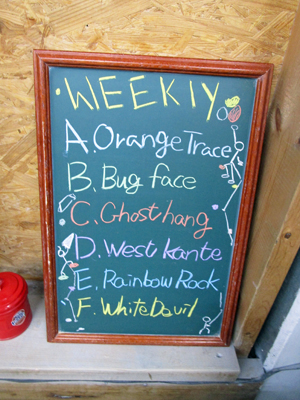 WEEKlY
A. Orange Trace
B. Bug face
C. Ghosthang
D. West kante
E. Rainbow Rock
F. White Devil